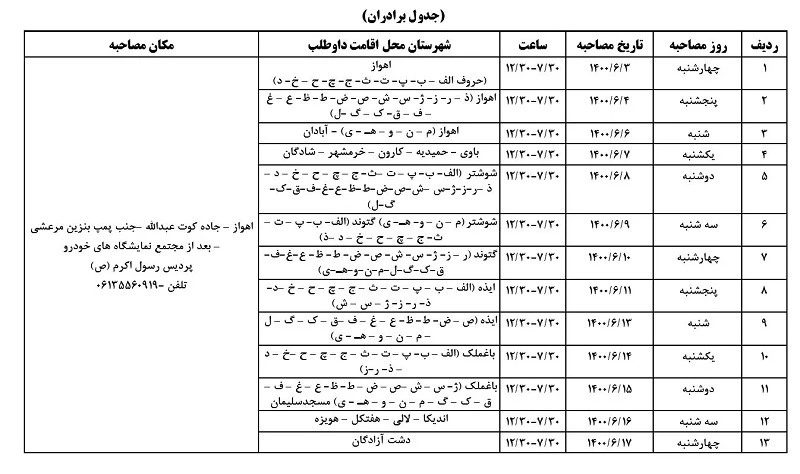 (جدول برادران)
ردیف روز مصاحبه تاریخ مصاحبه ساعت شهرستان محل اقامت داوطلب مکان مصاحبه
۱ چهارشنبه ۱۴۰۰/۶/۳ ۱۲/۳۰-۷/۳۰ اهواز
(حروف الف – ب- پ- ت- ث- ج- چ – ح – خ- د)
۲ پنجشنبه ۱۴۰۰/۶/۴ ۱۲/۳۰-۷/۳۰ اهواز (ذ – ر- ز- ژ- س- ش- ص- ض- ط- ظ- ع – غ
– ف – ق- ک – گ -ل)
۳ شنبه ۱۴۰۰/۶/۶ ۱۲/۳۰-۷/۳۰ اهواز (م – ن – و – هـ – ی) – آبادان
۴ یکشنبه ۱۴۰۰/۶/۷ ۱۲/۳۰-۷/۳۰ باوی – حمیدیه – کارون – خرمشهر – شادگان
۵ دوشنبه ۱۴۰۰/۶/۸ ۱۲/۳۰-۷/۳۰ شوشتر (الف- ب- پ – ت –ث- ج – چ – ح – خ – د –
ذ –ر-ز-ژ-س –ش-ص-ض-ط-ظ-ع-غ-ف-ق-ک-
گ-ل)
۶ سه شنبه ۱۴۰۰/۶/۹ ۱۲/۳۰-۷/۳۰ شوشتر (م – ن – و- هـ - ی) گتوند (الف- ب- پ – ت –
ث- ج – چ – ح – خ – د –ذ)
۷ چهارشنبه ۱۴۰۰/۶/۱۰ ۱۲/۳۰-۷/۳۰ گتوند (ر – ز- ژ – س – ش – ص – ض – ط – ظ – ع- غ- ف-
ق-ک-گ-ل-م-ن-و-هـ-ی)
۸ پنجشنبه ۱۴۰۰/۶/۱۱ ۱۲/۳۰-۷/۳۰ ایذه (الف – ب – پ – ت – ث – ج – چ – ح – خ –د-
ذ- ر- ز- ژ – س – ش)
۹ شنبه ۱۴۰۰/۶/۱۳ ۱۲/۳۰-۷/۳۰ ایذه (ص – ض- ط- ظ- ع – غ – ف –ق – ک – گ – ل
– م – ن – و – هـ – ی)
۱۰ یکشنبه ۱۴۰۰/۶/۱۴ ۱۲/۳۰-۷/۳۰ باغملک (الف – ب- پ – ت – ث – ج – چ – ح –خ – د
– ذ- ر-ز)
۱۱ دوشنبه ۱۴۰۰/۶/۱۵ ۱۲/۳۰-۷/۳۰ باغملک (ژ- س – ش –ص – ض – ط – ظ- ع – غ – ف –
ق – ک – گ – م – ن – و – هـ - ی) مسجدسلیمان
۱۲ سه شنبه ۱۴۰۰/۶/۱۶ ۱۲/۳۰-۷/۳۰ اندیکا – لالی – هفتکل – هویزه
۱۳ چهارشنبه ۱۴۰۰/۶/۱۷ ۱۲/۳۰-۷/۳۰ دشت آزادگان
اهواز – جاده کوت عبدالله –جنب پمپ بنزین مرعشی
– بعد از مجتمع نمایشگاه های خودرو
پردیس رسول اکرم (ص)
تلفن -۰۶۱۳۵۵۶۰۹۱۹